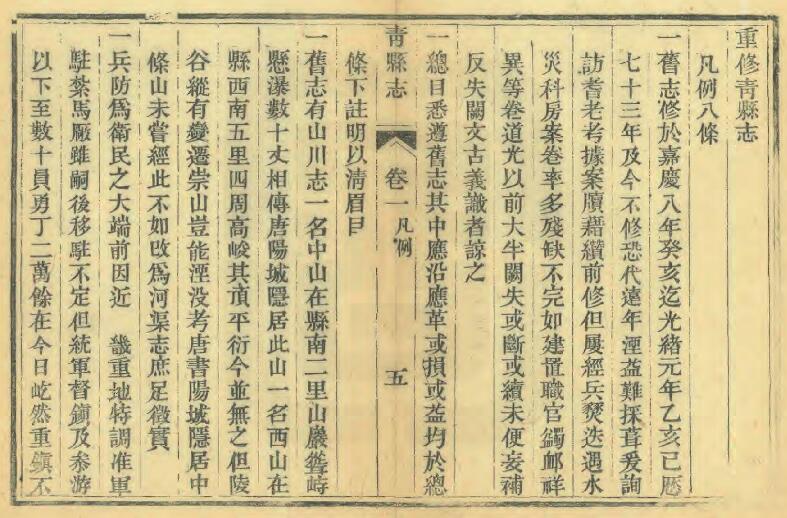 重修青縣志
凡例八條
一舊志修於嘉慶八年癸亥迄光緒元年乙亥已歷
七十三年及今不修恐代遠年湮益難探葺爰詢
訪耆老考據案牘藉纘前修但屢經兵燹迭遇水
災科房案卷率多殘缺不完如建置職官蠲卹祥
異等卷道光以前大半闕失或斷或續未便妄補
反失闕文古義識者諒之
一總目悉遵舊志其中應沿應革或損或益均於總
青縣志 卷一 凡例 五
條下註明以清眉目
一舊志有山川志一名中山在縣南二里山巖聳峙
懸瀑數十丈相傳唐陽城隱居此山一名西山在
縣西南五里四周高峻其頂平衍今並無之但陵
谷縱有變遷崇山豈能湮没考唐書陽城隱居中
條山未嘗經此不如改爲河渠志庶足徵實
一兵防爲衛民之大端前因近 畿重地特調准軍
駐紮馬廠雖嗣後移駐不定但統軍督鎮及叅游
以下至數十員勇丁二萬餘在今日屹然重鎮不